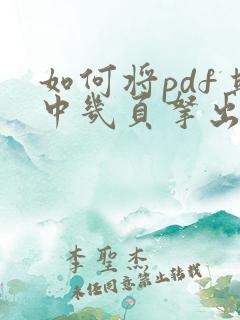 如何将pdf
中几页拏出
李聖杰
未经同意禁止转载